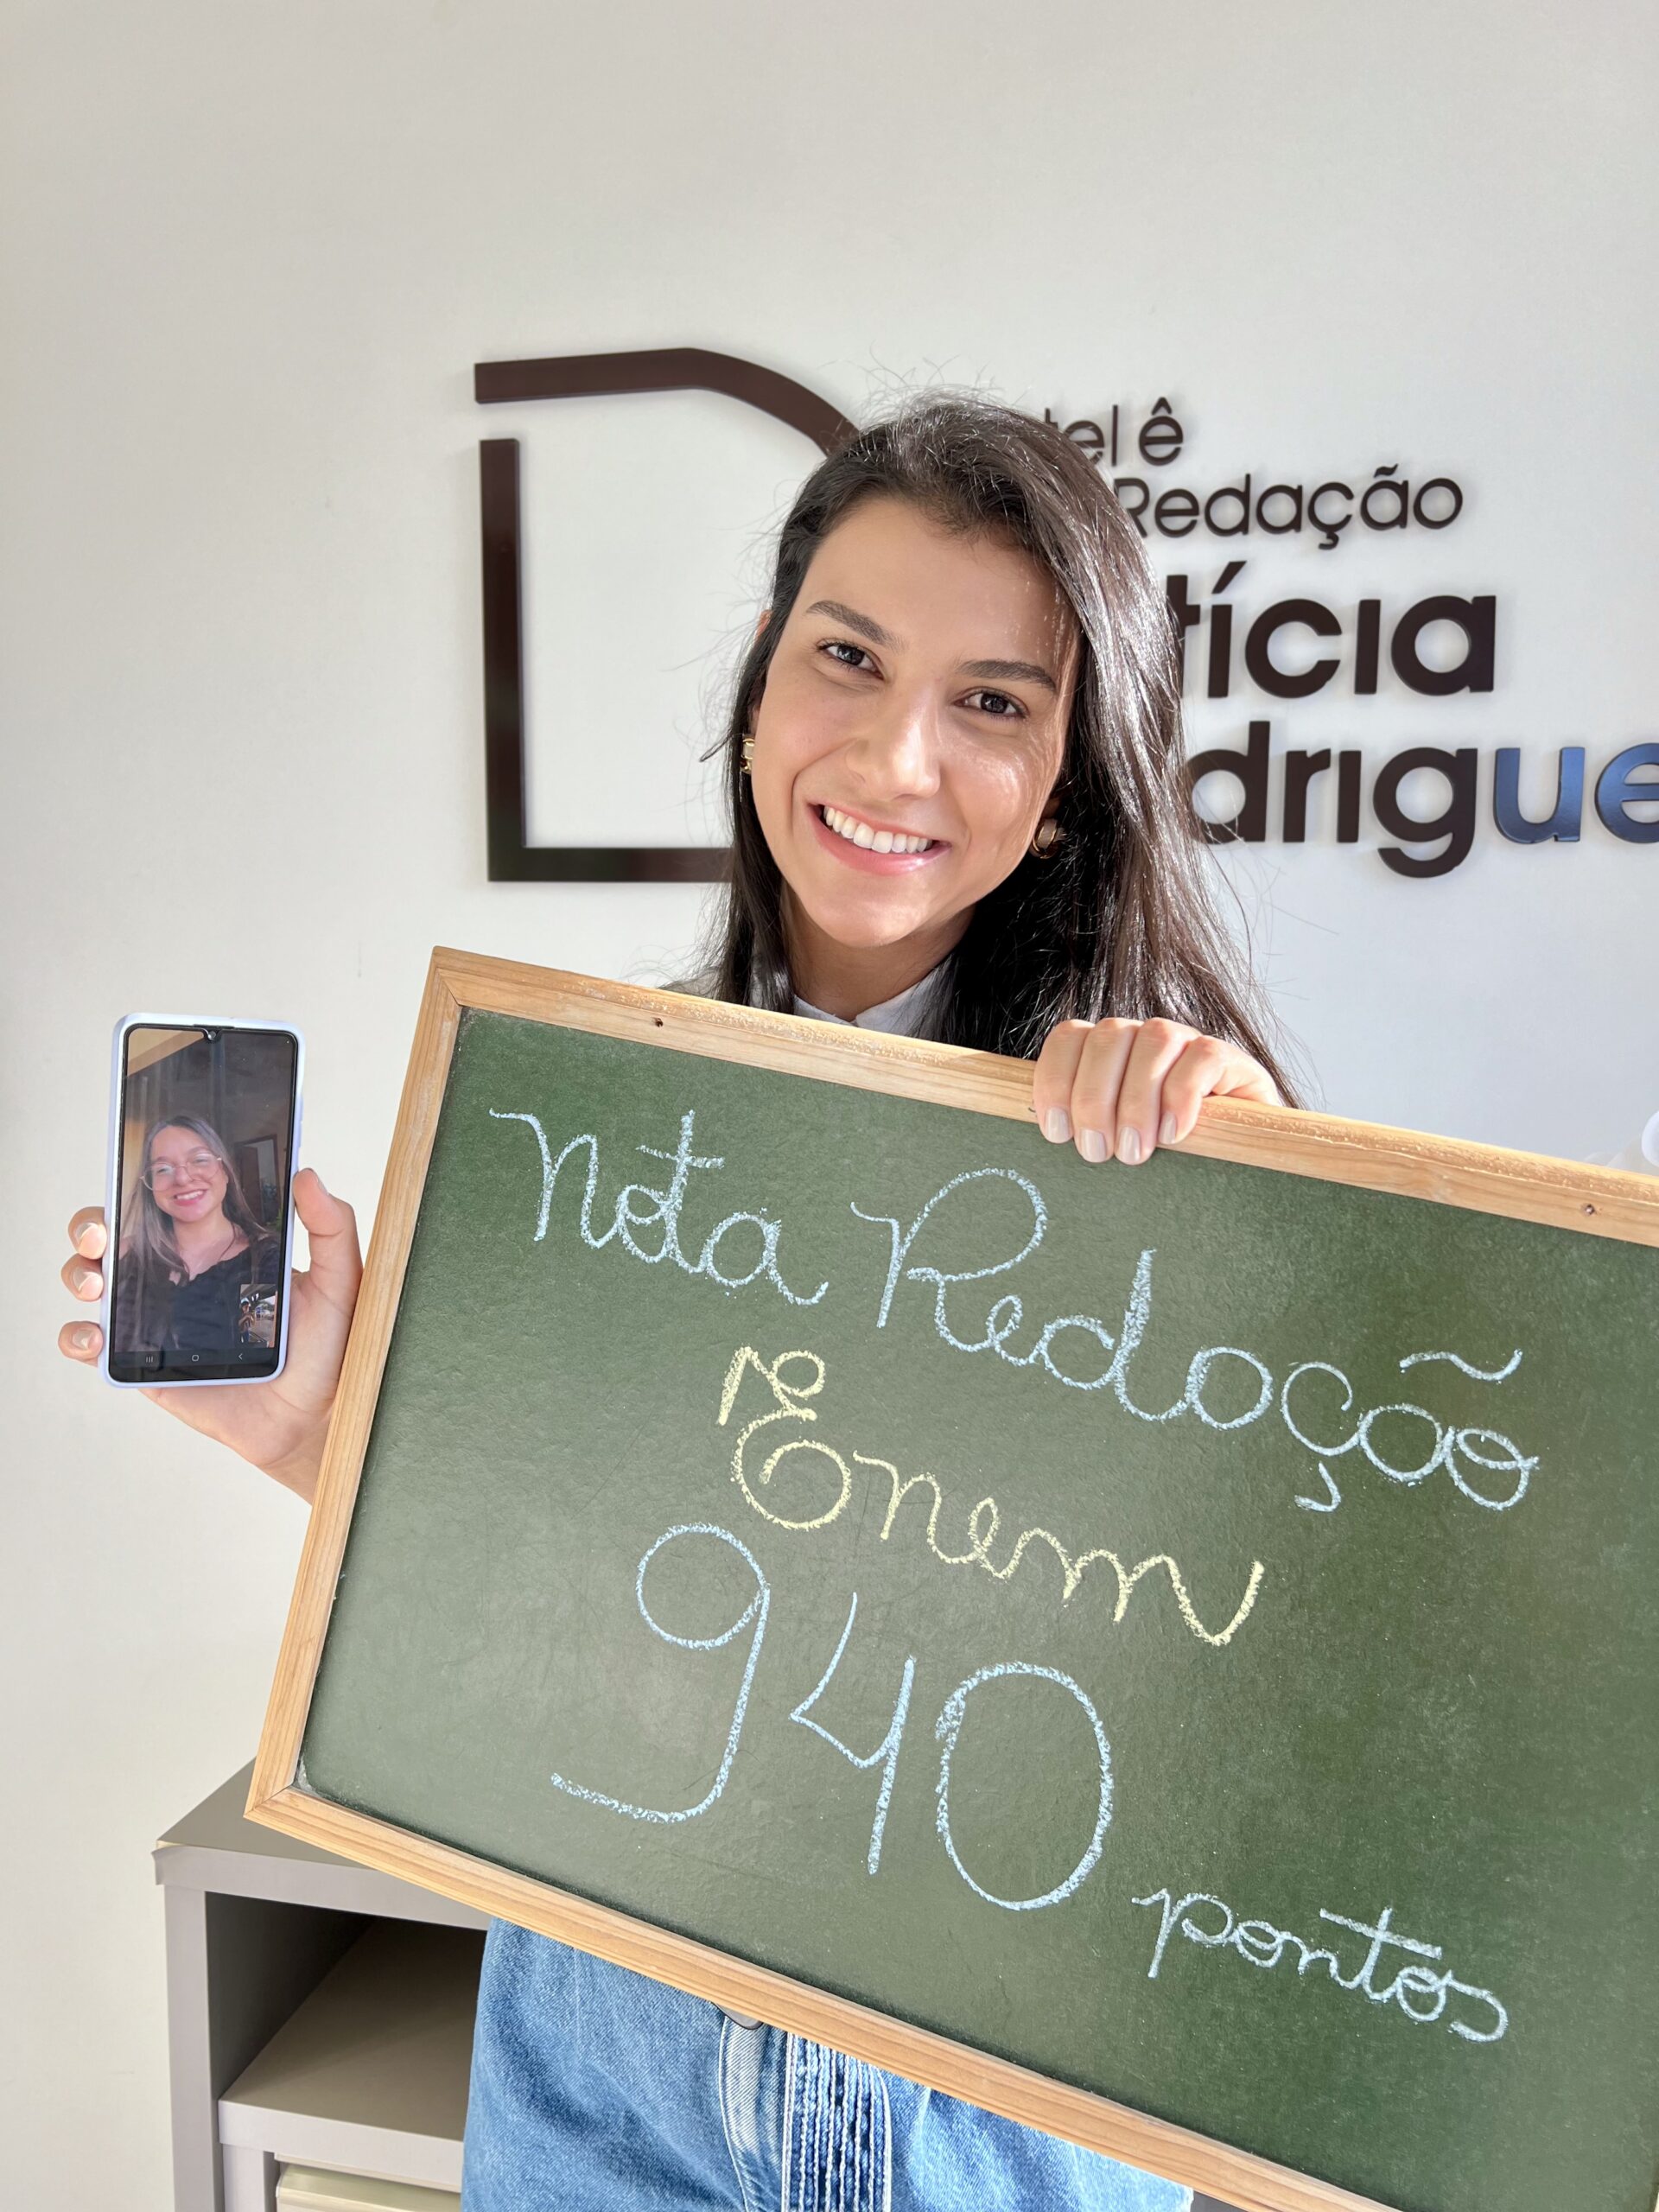 tel ê
Redação
tícia
drigue
Nota Redação
Enem
940 pontos